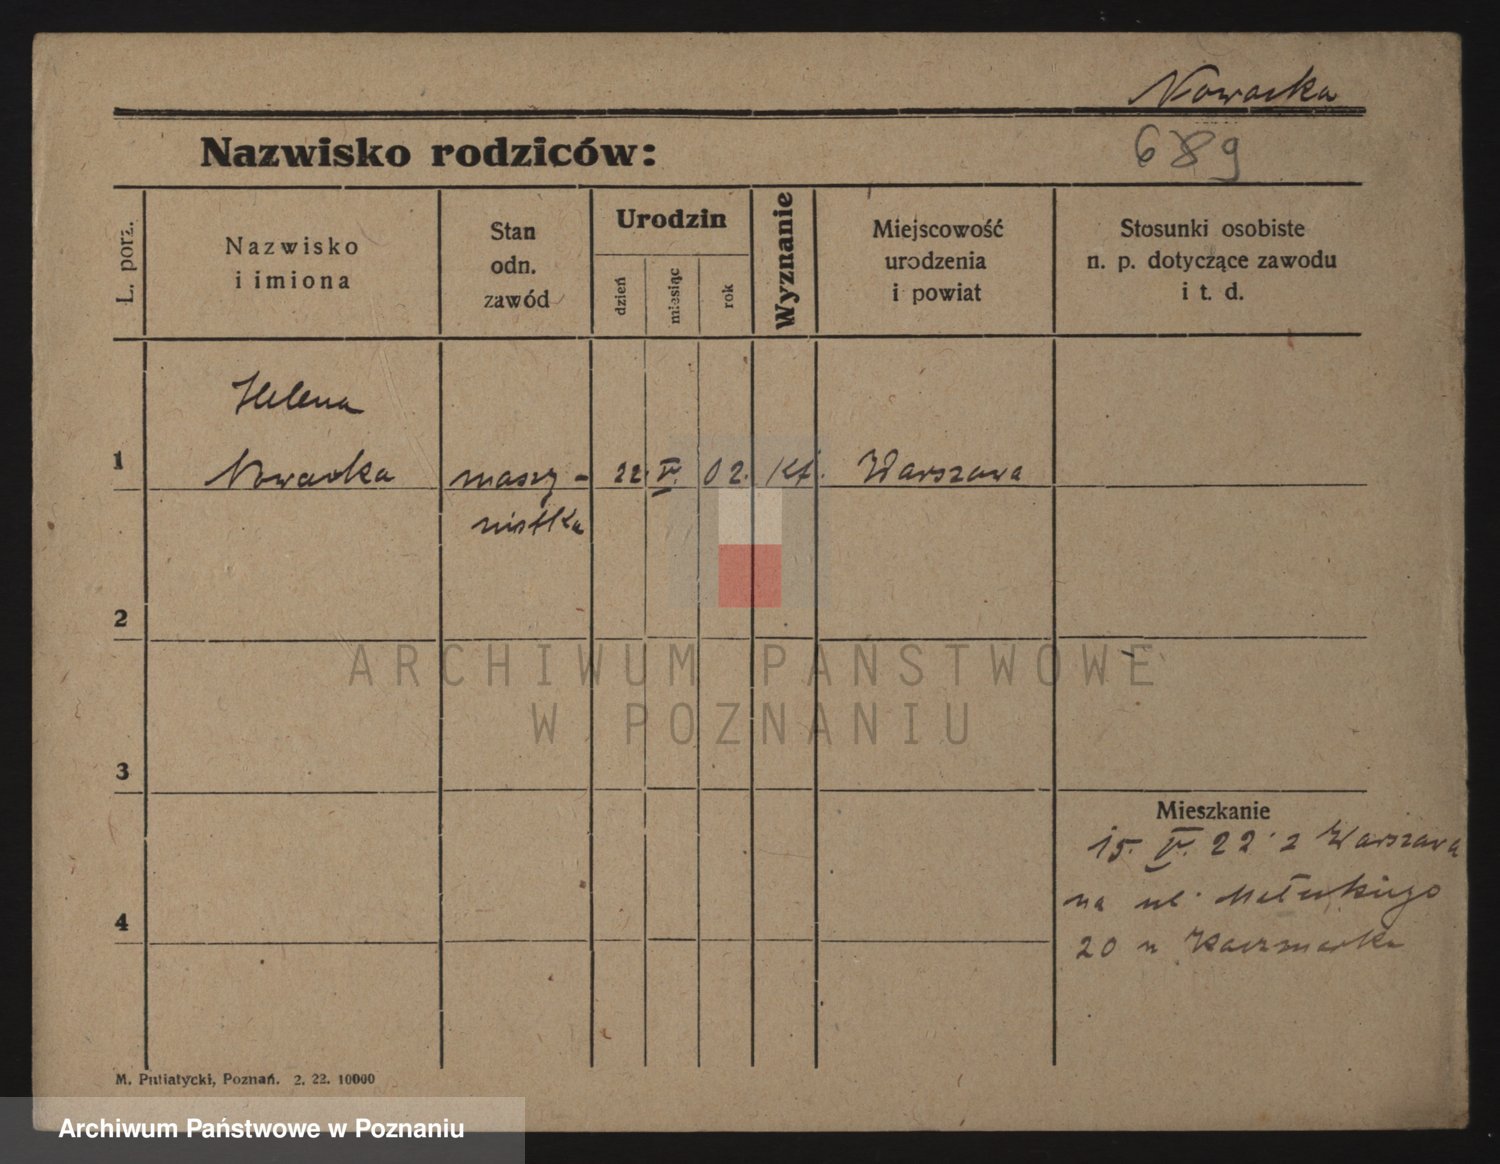 Nowacka
689
Nazwisko rodziców:
L. porz.
Nazwisko
i imiona
Stan
odn.
zawód
Urodzin
dzień
miesiąc
rok
Wyznanie
Miejscowość
urodzenia
i powiat
Stosunki osobiste
n. p. dotyczące zawodu
i t. d.
1
Helena
Nowacka
maszy-
nistka
22.
V.
02.
Kt.
Warszawa
2
3
4
Mieszkanie
15. V. 22 z Warszawa
na ul.
20 u Kaczmarka
M. Putiatycki, Poznań. 2. 22. 10000
ARCHIWUM PAŃSTWOWE
W POZNANIU
Archiwum Państwowe w Poznaniu